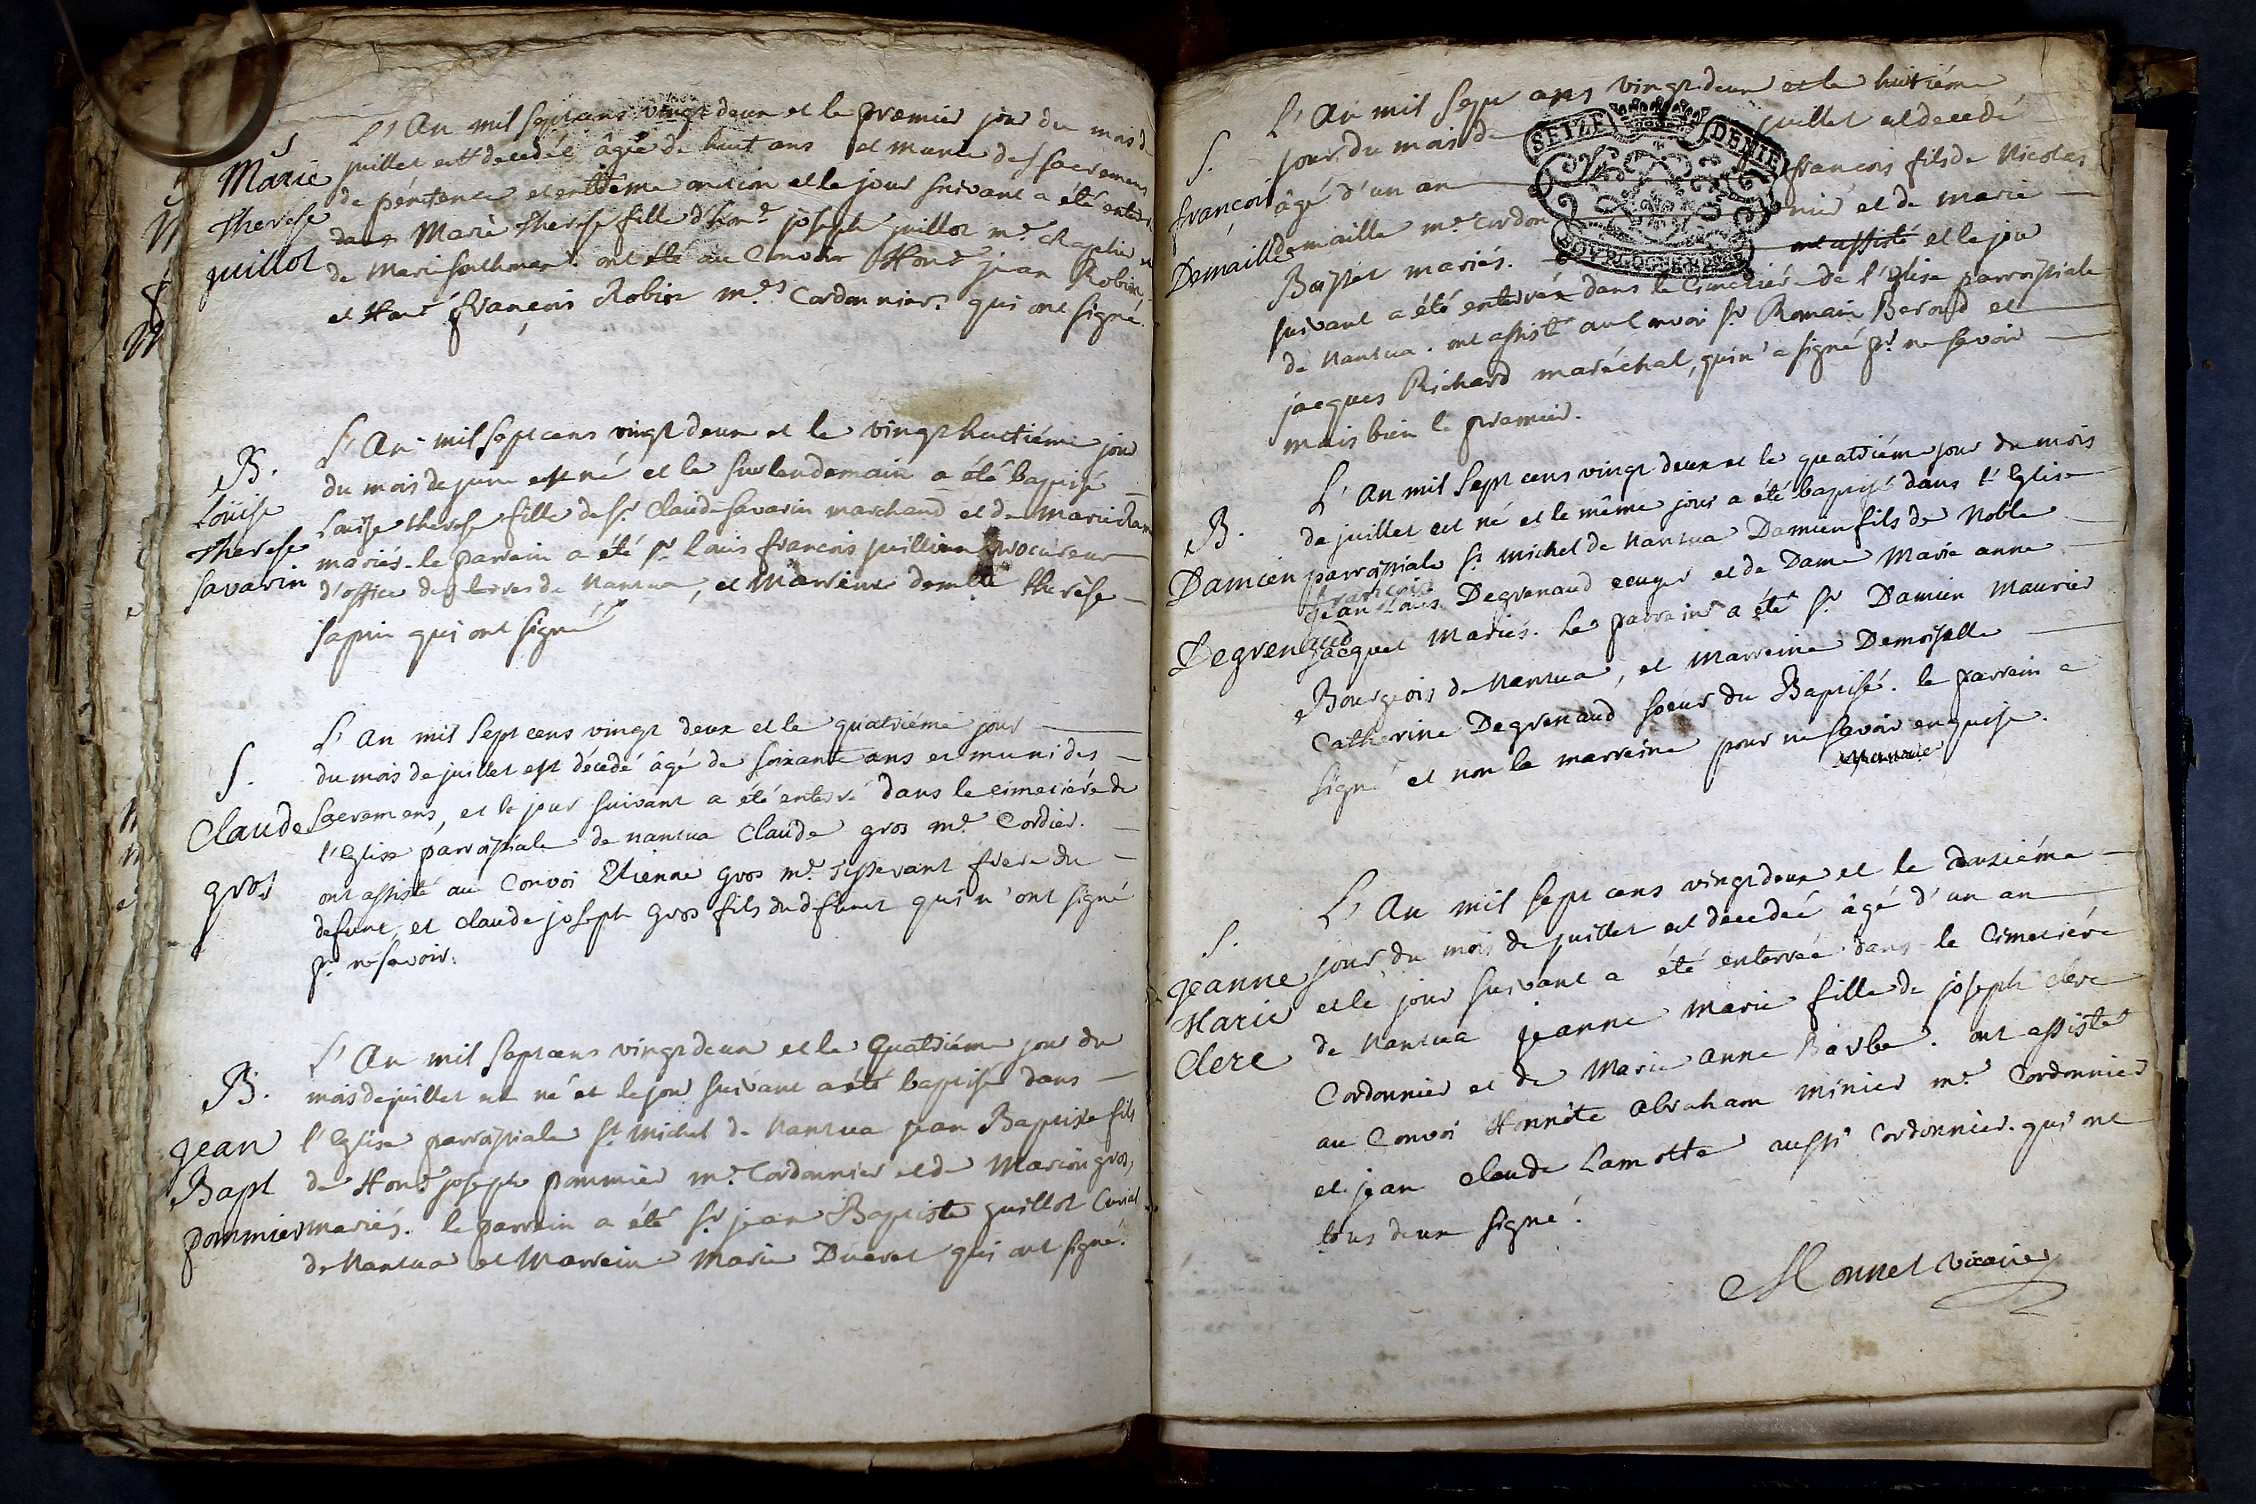 S
Marie
Therese
guillot
L'An mil septcens vingt deux et le premier jour du mois de
juillet est decedée âgée de huit ans et munie des sacremens
de pénitence et extrême onction et le jour suivant a été enterrée
dans Marie Therese fille d'Hon.e joseph juillot m.e
de Marie ont été au Convoi Hon.e jean Robin,
et Hon.é françois Robin m.es Cordonniers qui ont signé.
B.
Loüise
Therese
Savarin
L'An mil sept cens vingt deux et le vingt huitiéme jour
du mois de juin est né et le surlendemain a été baptisé
Louise therese fille de Sr. Claude Savarin marchand et de Marie
mariés. le parrain a été Sr. Louis francois juillien procureur
d'office des terres de Nantua, et Marreine demlle. therèse
Sapin qui ont signé
S.
Claude
gros
L'an mil sept cens vingt deux et le quatriéme jour
du mois de juillet est décedé âgé de soixante ans et muni des
Sacremens, et le jour suivant a été enterré dans le cimetiére de
l'Eglise parroissiale de nantua Claude gros m.e Cordier.
ont assisté au Convoi Etienne gros m.e Tisserant frere du
defunt, et claude joseph gros fils du defunt qui n'ont signé
pr. ne savoir.
B.
Jean
Bapt
pommier
L'An mil septcens vingt deux et le Quatriéme jour du
mois de juillet est né et le jour suivant a été baptisé dans
l'Eglise parroissiale St. Michel de Nantua jean Baptiste fils
de Hon.e joseph pommier m.e Cordonnier et de Marion gros,
mariés. le parrain a été Sr. jean Baptiste guillot Curial
de Nantua et Marreine Marie Ducret qui ont signé.
S.
françois
Demaille
L'An mil sept cens vingt deux et le huitiéme
jour du mois de juillet est decedé
âgé d'un an francois fils de Nicolas
demaille m.e Cordonnier et de marie
Baptet mariés. ont assisté et le jour
suivant a été enterré dans le Cimetiére de l'Eglise parroissiale
de Nantua. ont assisté au Convoi Sr. Romain Beroud et
jacques Richard maréchal, qui n'a signé pr. ne savoir
mais bien le premier.
SEIZE DENIE
BOURGOGNE
B.
Damien
Degrenaud
L'An mil Sept cens vingt deux et le quatriéme jour du mois
de juillet est né et le même jour a été baptisé dans l'Eglise
parroissiale St. Michel de Nantua Damien fils de Noble
francois
jean Louis Degrenaud ecuyer et de Dame Marie anne
jacquet Mariés. Le parrain a été Sr. Damien Maurier
Bourgeois de Nantua, et Marreine Demoiselle
Catherine Degrenaud soeur du Baptisé. le parrain a
signé et non la marreine pour ne savoir enquise.
S.
Jeanne
Marie
Clere
L'An mil sept cens vingt deux et le douziéme
jour du mois de juillet est decedeé âgé d'un an
et le jour suivant a été enterrée dans le Cimetiére
de Nantua jeanne Marie fille de joseph clerc
Cordonnier et de Marie anne Barbe. ont assisté
au Convoi Honnéte abraham minier m.e Cordonnier
et jean claude Lamotte aussi Cordonnier. qui ont
tous deux signé.
Monnet vicaire